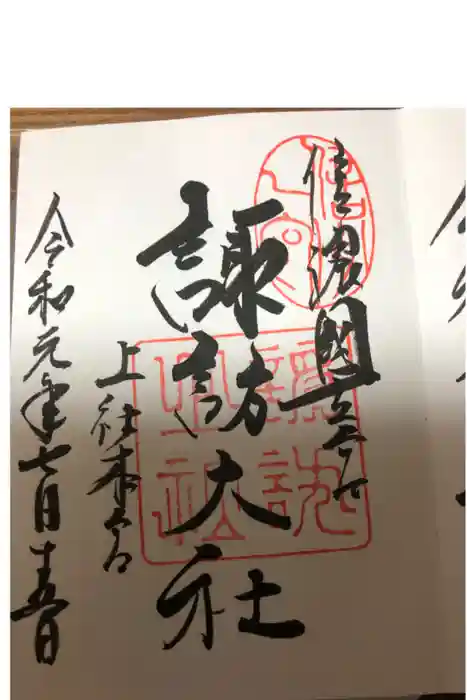 信濃國一之宮
諏訪大社
上社本宮
令和元年七月十五日